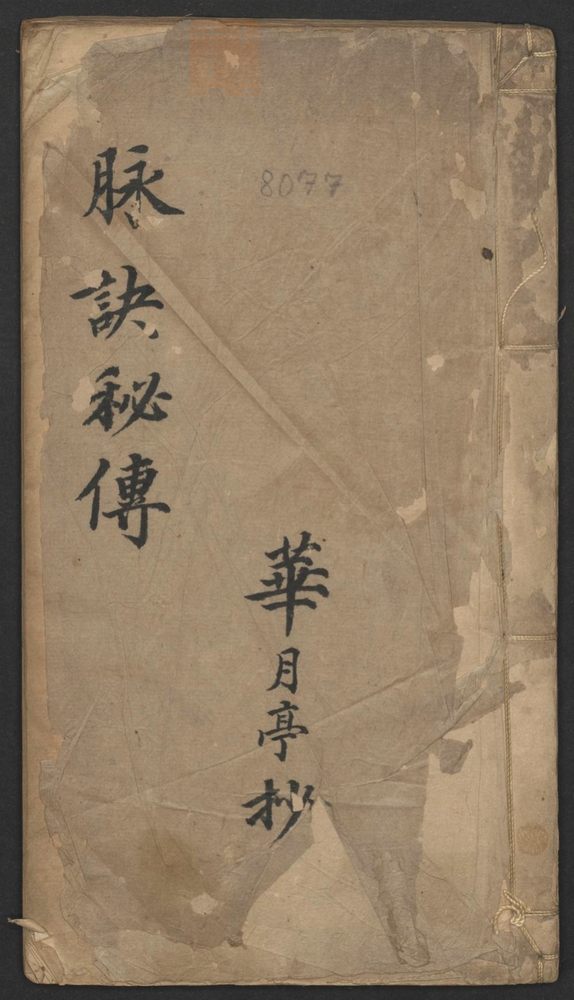 脉訣秘傳
8077
華月亭抄